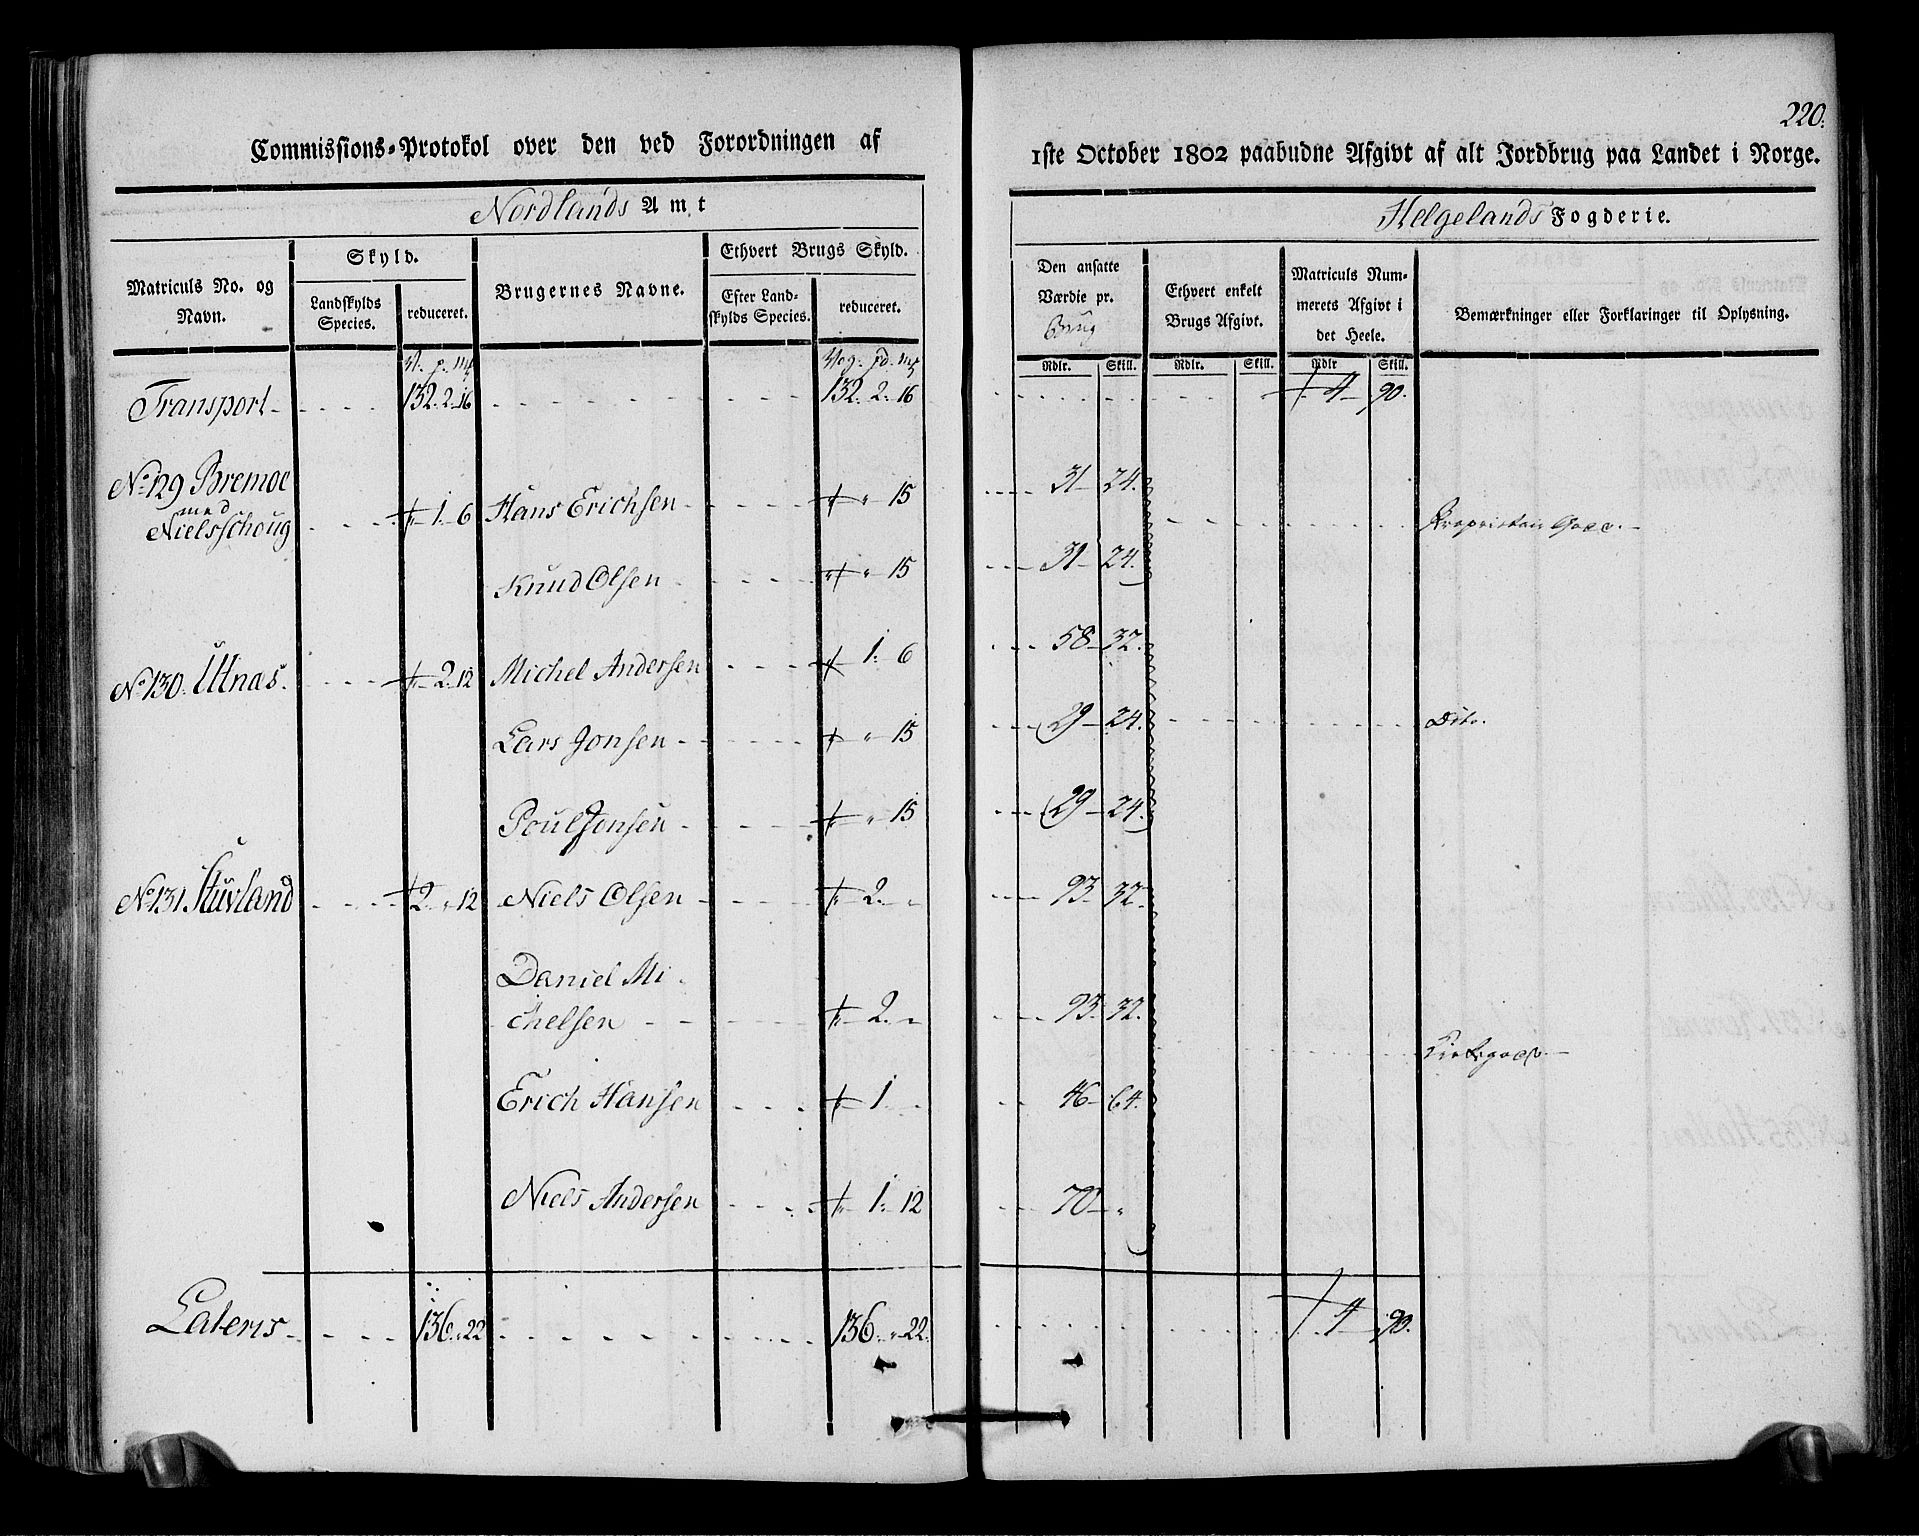 220.
Commissions-Protokol over den ved Forordningen af 1ste October 1802 paabudne Afgivt af alt Jordbrug paa Landet i Norge.
Nordlands Amt
Helgelands Fogderie.
Matriculs No. og Navn.
Skyld.
Landskylds Species.
reduceret.
Brugernes Navne.
Ethvert Brugs Skyld.
Efter Landskylds Species.
reduceret.
Den ansatte Værdie pr. Brug
Ethvert enkelt Brugs Afgivt.
Matriculs Nummerets Afgivt i det Heele.
Bemærkninger eller Forklaringer til Oplysning.
Rdlr. Skill. Rdlr. Skill. Rdlr Skill.
Transport 132. 2. 16 132. 2. 16 4 90.
No 129 Bremoe med Nielsschoug 1. 6 Hans Erichsen 15 31 24.
Knud Olsen 15 31 24.
No 130. Utnæs. 2. 12 Michel Andersen 1. 6 58 32.
Lars Jonsen 15 29 24. Dito.
Poul Jonsen 15 29 24.
No 131. Stuvland 2 12 Niels Olsen 2. 93 32.
Daniel Michelsen 2. 93 32.
Erich Hansen 1 46 64.
Niels Andersen 1. 12 70
Lateris 136. 22 136. 22. 4 90.